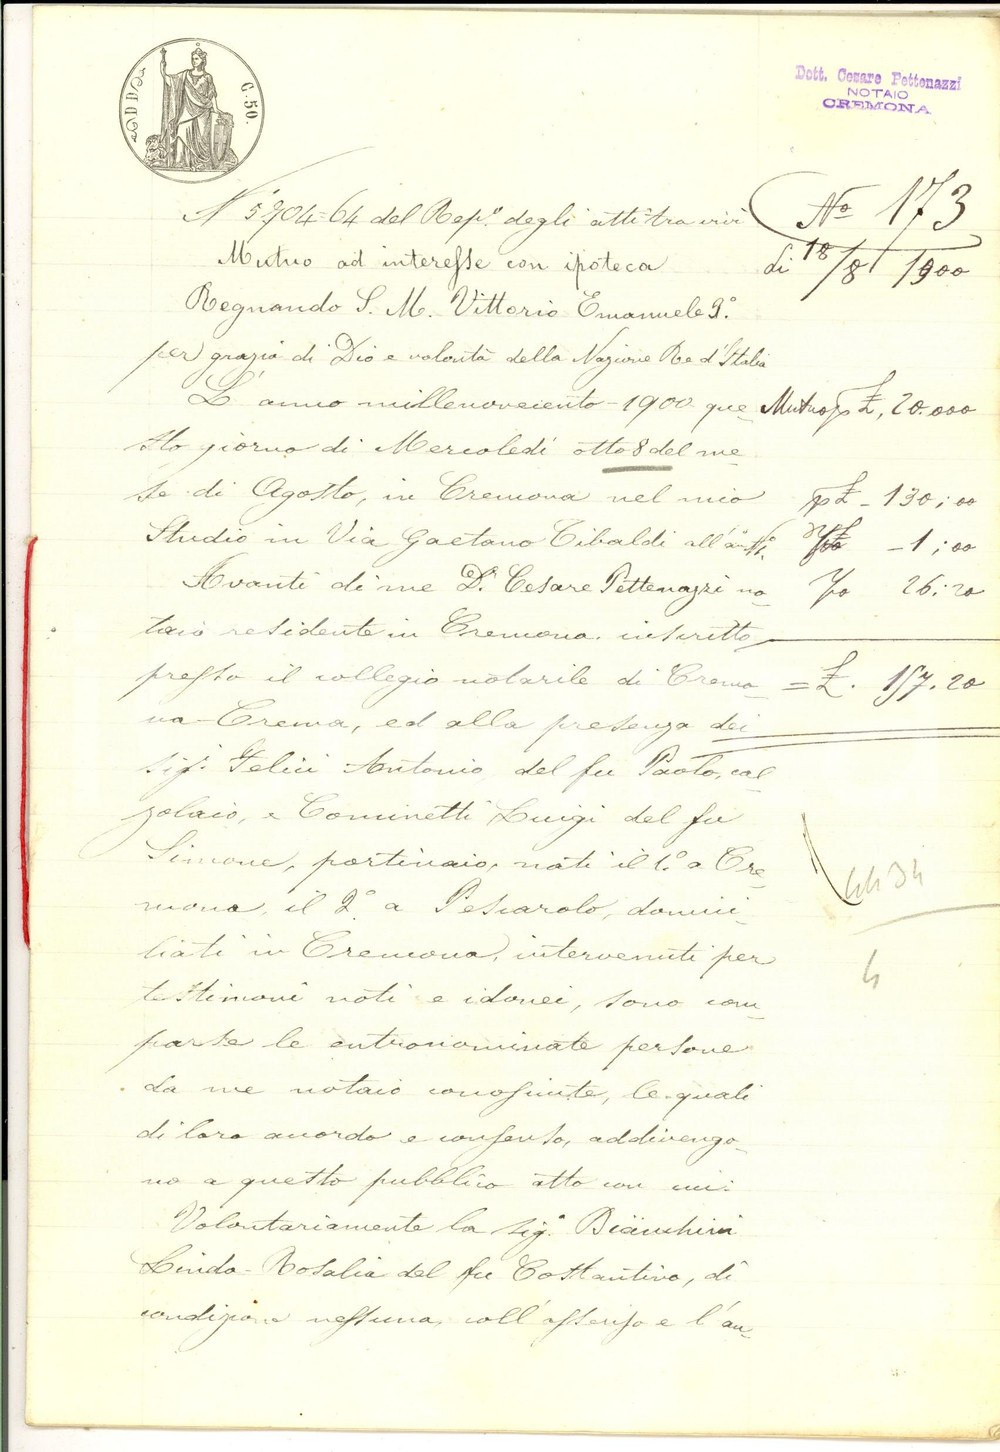 C. 50.
Dott. Cesare Pettenazzi
NOTAIO
CREMONA
No 173
di 18/8 1900
N° 5904=64 del Rep.° degli atti tra vivi
Mutuo ad interesse con ipoteca
Regnando S. M. Vittorio Emanuele 3.°
per grazia di Dio e volontà della Nazione Re d'Italia
L'anno millenovecento - 1900 que-
sto giorno di Mercoledì otto 8 del me-
se di Agosto, in Cremona nel mio
Studio in Via Gaetano Tibaldi
Avanti di me D.r Cesare Pettenazzi no-
taio residente in Cremona inscritto
presso il collegio notarile di Cremo-
na-Crema, ed alla presenza dei
sig.i Felici Antonio del fu Paolo, cal-
zolaio, e Cominetti Luigi del fu
Simone, portinaio, nati il 1.° a Cre-
mona, il 2.° a Pescarolo, domici-
liati in Cremona, intervenuti per
testimoni noti e idonei, sono com-
parse le entronominate persone
da me notaio conosciute, le quali
di loro accordo e consenso, addivengo-
no a questo pubblico atto con cui:
Volontariamente la sig.a Bianchini
Linda-Rosalia del fu Costantino, di
condizione nessuna, coll'assenso e l'au-
Mutuo £, 20.000
£ - 130,00
- 1,00
26,20
= £. 157.20